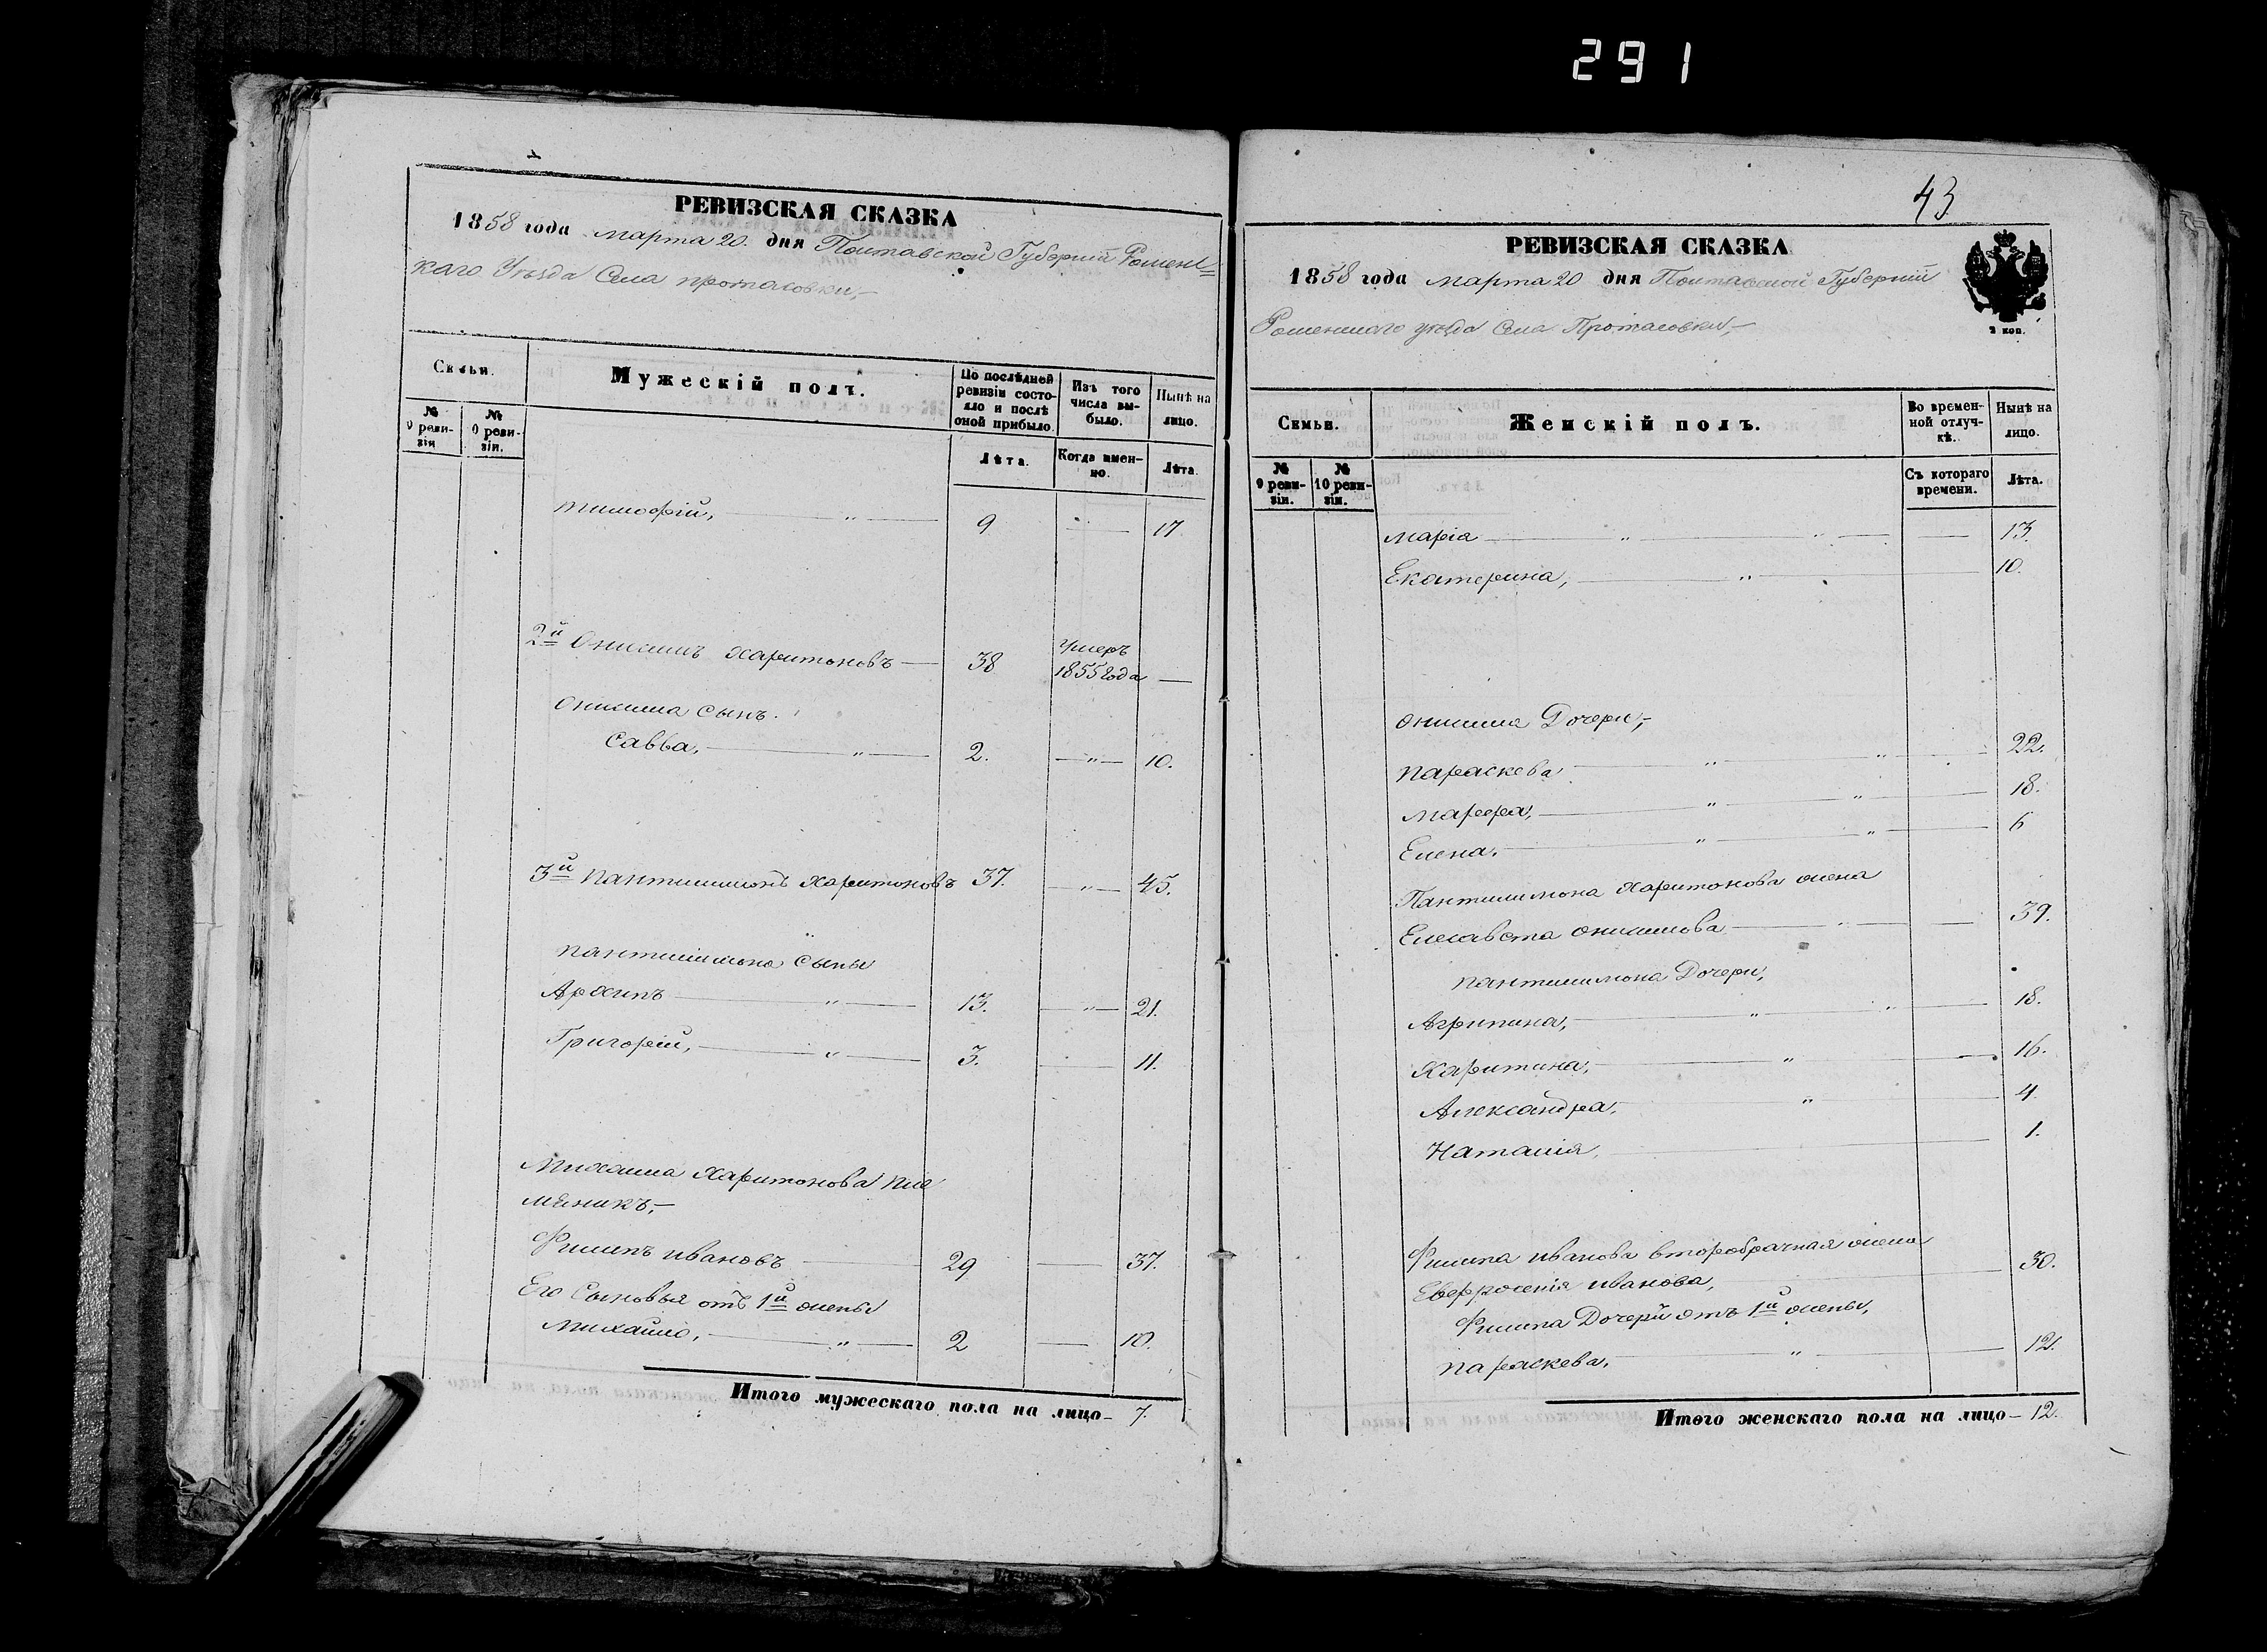 291
РЕВИЗСКАЯ СКАЗКА
1858 года марта 20. дня Полтавской Губерніи Роменс=
каго Уѣзда Села протасовки,-
Семьи.
Мужескій полъ.
По послѣдней ревизіи состояло и послѣ оной прибыло.
Изъ того числа выбыло.
Нынѣ на лицо.
№ 9 ревизіи
№ 0 ревизіи.
Лѣта.
Когда именно.
Лѣта.
тимофій, — " — 9 — 17
2й Онисимъ Харитоновъ — 38 Умеръ 1855 года —
онисима сынъ.
Савва, — " — 2. — " — 10.
3й пантилимонъ Харитоновъ 37. — " — 45.
пантилимона сыны
Архипъ — " — 13. — " — 21.
Григорій, — " — 3. — 11.
Михаила Харитонова пле
меникъ,-
Филипъ ивановъ — 29 — 37.
Его Сыновья отъ 1й жены
Михайло, — " — 2 — 10.
Итого мужескаго пола на лицо - 7.
43
РЕВИЗСКАЯ СКАЗКА
1858 года марта 20 дня Полтавской Губерніи
Роменскаго уѣзда Села Протасовки,-
2 коп.
Семьи.
Женскій полъ.
Во временной отлучкѣ.
Нынѣ на лицо.
№ 9 ревизіи.
№ 10 ревизіи.
Съ котораго времени.
Лѣта.
маріа — " — " — 13.
Екатерина, — " — 10.
онисима Дочери,-
параскева — " — " — 22.
марфа, — " — " — 18.
Елена. — " — " — 6
Пантилимона Харитонова жена
Елисавета онисимова — " — 39.
пантилимона Дочери,
Агрипина, — " — " — 18.
Харитина, — " — 16.
Александра, — " — 4.
Наталія, — 1.
Филипа иванова второбрачная жена
Евфросенія иванова, — 30.
Филипа Дочери отъ 1й жены,
параскева, — " — 12.
Итого женскаго пола на лицо - 12.